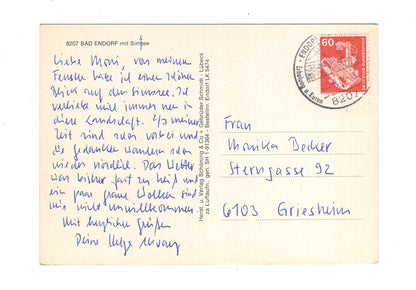 8207 BAD ENDORF mit Simsee
Liebe Moni, von meinem
Fenster habe ich einen schönen
Blick auf den Simssee. Ich
verliebe mich immer neu in
diese Landschaft. 2/3 meiner
Zeit sind schon vorbei und
die Gedanken wandern schon
wieder nördlich. Das Wetter
war bisher fast zu heiß und
ein paar graue Wolken sind
mir nicht unwillkommen.
Mit herzlichen Grüßen
Deine Helga
Herst. u. Verlag Schöning & Co + Gebrüder Schmidt - Lübeck
60
8207
Frau
Monika Becker
Sterngasse 92
6103 Griesheim